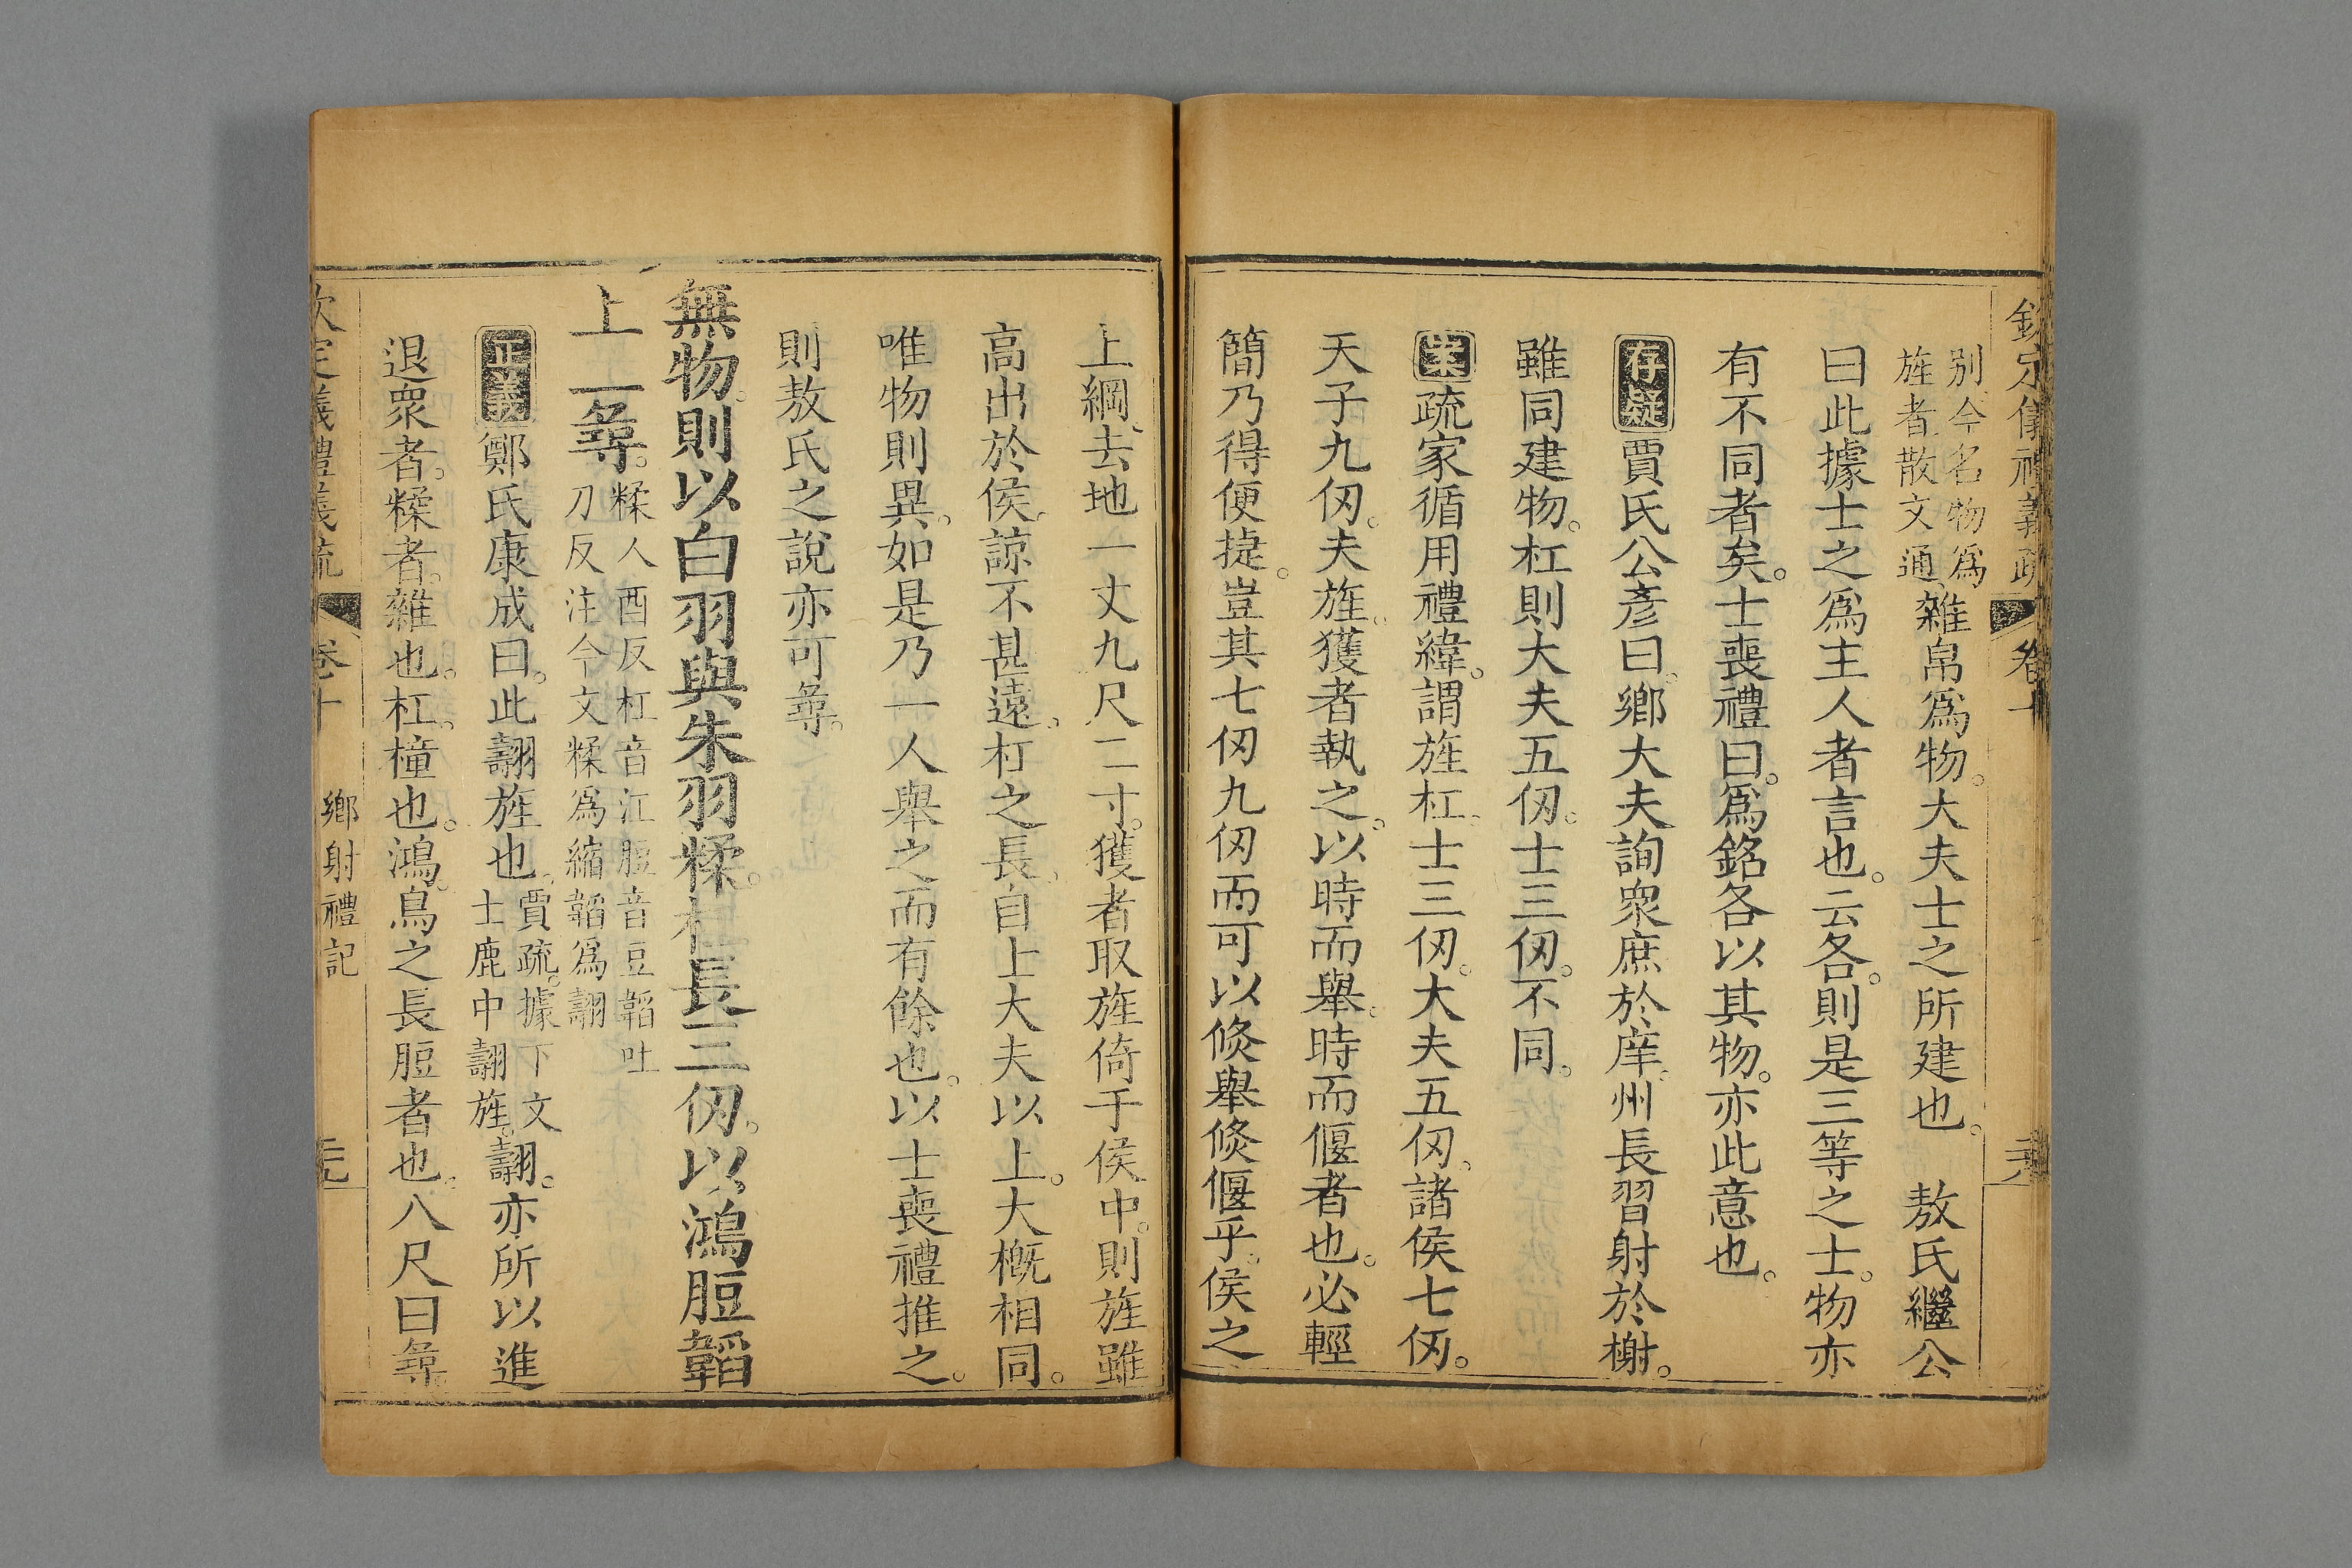 欽定儀禮義疏 卷十
别今名物爲
旌者散文通、雜帛爲物。大夫士之所建也。 敖氏繼公
曰此據士之爲主人者言也。云各。則是三等之士。物亦
有不同者矣。士喪禮曰。爲銘各以其物。亦此意也。
存疑 賈氏公彥曰。鄉大夫詢衆庶於庠。州長習射於榭。
雖同建物。杠則大夫五仞。士三仞。不同。
案 疏家循用禮緯。謂旌杠。士三仞。大夫五仞。諸侯七仞。
天子九仞。夫旌。獲者執之。以時而舉。時而偃者也。必輕
簡乃得便捷。豈其七仞九仞而可以倐舉倐偃乎。侯之
上綱、去地一丈九尺二寸。獲者取旌倚于侯中。則旌雖
高出於侯。諒不甚遠。杠之長。自上大夫以上。大槪相同。
唯物則異。如是乃一人舉之而有餘也。以士喪禮推之。
則敖氏之說亦可尋。
無物。則以白羽與朱羽糅。杠長三仞。以鴻脰韜
上二尋。糅人酉反杠音江脰音豆韜吐
刀反注今文糅爲縮韜爲翿
正義 鄭氏康成曰。此翿旌也。賈疏。據下文
士鹿中翿旌。翿。亦所以進
退衆者。糅者。雜也。杠。橦也。鴻。鳥之長脰者也。八尺曰尋。
欽定儀禮義疏 卷十 鄉射禮記